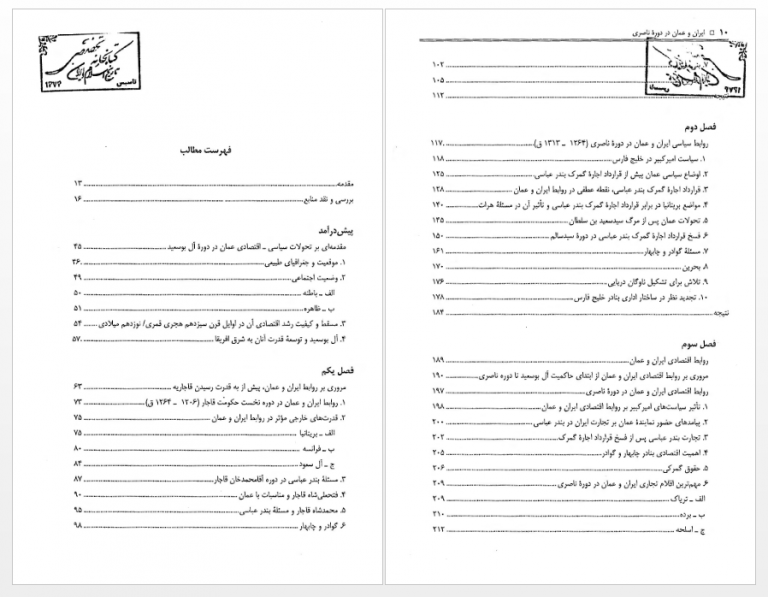 کتابخانه تخصصی
تاریخ اسلام و ایران
تاسیس
فهرست مطالب
مقدمه ۱۳
بررسی و نقد منابع ۱۶
پیش‌درآمد
مقدمه‌ای بر تحولات سیاسی ـ اقتصادی عمان در دورهٔ آل بوسعید ۴۵
۱. موقعیت و جغرافیای طبیعی ۴۶
۲. وضعیت اجتماعی ۴۹
الف ـ باطنه ۵۰
ب ـ ظاهره ۵۱
۳. مسقط و کیفیت رشد اقتصادی آن در اوایل قرن سیزدهم هجری قمری/ نوزدهم میلادی ۵۴
۴. آل بوسعید و توسعهٔ قدرت آنان به شرق افریقا ۵۷
فصل یکم
مروری بر روابط ایران و عمان، پیش از به قدرت رسیدن قاجاریه ۶۳
۱. روابط ایران و عمان در دوره نخست حکومت قاجار (۱۲۰۶ ـ ۱۲۶۴ ق) ۷۳
۲. قدرت‌های خارجی مؤثر در روابط ایران و عمان ۷۵
الف ـ بریتانیا ۷۵
ب ـ فرانسه ۸۰
ج ـ آل سعود ۸۴
۳. مسئلهٔ بندر عباسی در دوره آقامحمدخان قاجار ۸۷
۴. فتحعلی‌شاه قاجار و مناسبات با عمان ۹۰
۵. محمدشاه قاجار و مسئلهٔ بندر عباسی ۹۵
۶. گوادر و چابهار ۹۸
۱۰ □ ایران و عمان در دورهٔ ناصری
۱۰۲
۱۰۵
نتیجه ۱۱۲
فصل دوم
روابط سیاسی ایران و عمان در دورهٔ ناصری (۱۲۶۴ ـ ۱۳۱۳ ق) ۱۱۷
۱. سیاست امیرکبیر در خلیج فارس ۱۱۸
۲. اوضاع سیاسی عمان پیش از قرارداد اجارهٔ گمرک بندر عباسی ۱۲۵
۳. قرارداد اجارهٔ گمرک بندر عباسی، نقطه عطفی در روابط ایران و عمان ۱۲۸
۴. مواضع بریتانیا در برابر قرارداد اجارهٔ گمرک بندر عباسی و تأثیر آن در مسئلهٔ هرات ۱۴۰
۵. تحولات عمان پس از مرگ سیدسعید بن سلطان ۱۴۵
۶. فسخ قرارداد اجارهٔ گمرک بندر عباسی در دورهٔ سیدسالم ۱۵۰
۷. مسئلهٔ گوادر و چابهار ۱۶۱
۸. بحرین ۱۷۰
۹. تلاش برای تشکیل ناوگان دریایی ۱۷۶
۱۰. تجدید نظر در ساختار اداری بنادر خلیج فارس ۱۷۸
نتیجه ۱۸۴
فصل سوم
روابط اقتصادی ایران و عمان ۱۸۹
مروری بر روابط اقتصادی ایران و عمان از ابتدای حاکمیت آل بوسعید تا دوره ناصری ۱۹۰
روابط اقتصادی ایران و عمان در دورهٔ ناصری ۱۹۷
۱. تأثیر سیاست‌های امیرکبیر بر روابط اقتصادی ایران و عمان ۱۹۸
۲. پیامدهای حضور نمایندهٔ عمان بر تجارت ایران در بندر عباسی ۲۰۰
۳. تجارت بندر عباسی پس از فسخ قرارداد اجارهٔ گمرک ۲۰۲
۴. اهمیت اقتصادی بنادر چابهار و گوادر ۲۰۵
۵. حقوق گمرکی ۲۰۶
۶. مهم‌ترین اقلام تجاری ایران و عمان در دورهٔ ناصری ۲۰۹
الف ـ تریاک ۲۰۹
ب ـ برده ۲۱۰
ج ـ اسلحه ۲۱۲